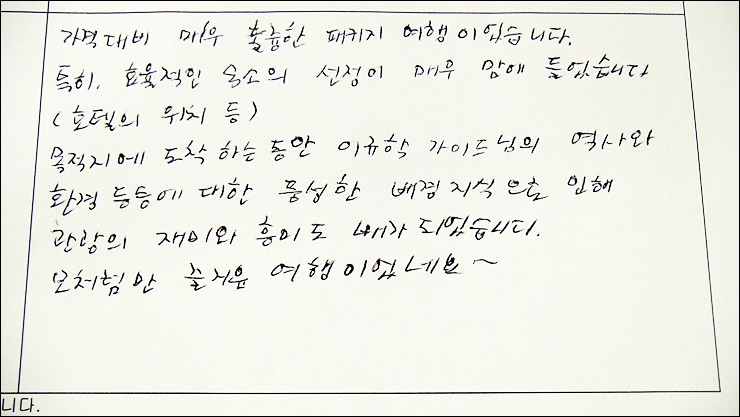 가격대비 매우 훌륭한 패키지 여행이었습니다.
특히, 효율적인 숙소의 선정이 매우 맘에 들었습니다
(호텔의 위치 등)
목적지에 도착하는 동안 이규학 가이드님의 역사와
환경 등등에 대한 풍성한 배경지식으로 인해
관광의 재미와 흥미도 배가 되었습니다.
모처럼만 즐거운 여행이었네요~
니다.